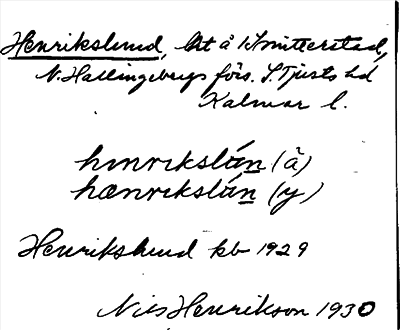 Henrikslund, lht å 1 Smitterstad,
N. Hallingebergs förs. S. Tjusts hd
Kalmar l.
hınrıkslún (ä)
hænrıkslún (y)
Henrikslund kb 1929
Nils Henrikson 1930